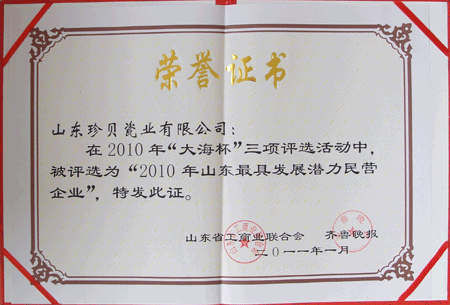 荣誉证书
山东珍贝瓷业有限公司：
在2010年“大海杯”三项评选活动中，
被评选为“2010年山东最具发展潜力民营
企业”，特发此证。
山东省工商业联合会 齐鲁晚报
二〇一一年一月